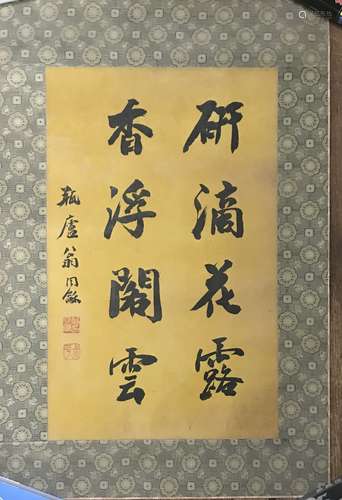 研滴花露
香浮閣雲
瓶廬翁同龢